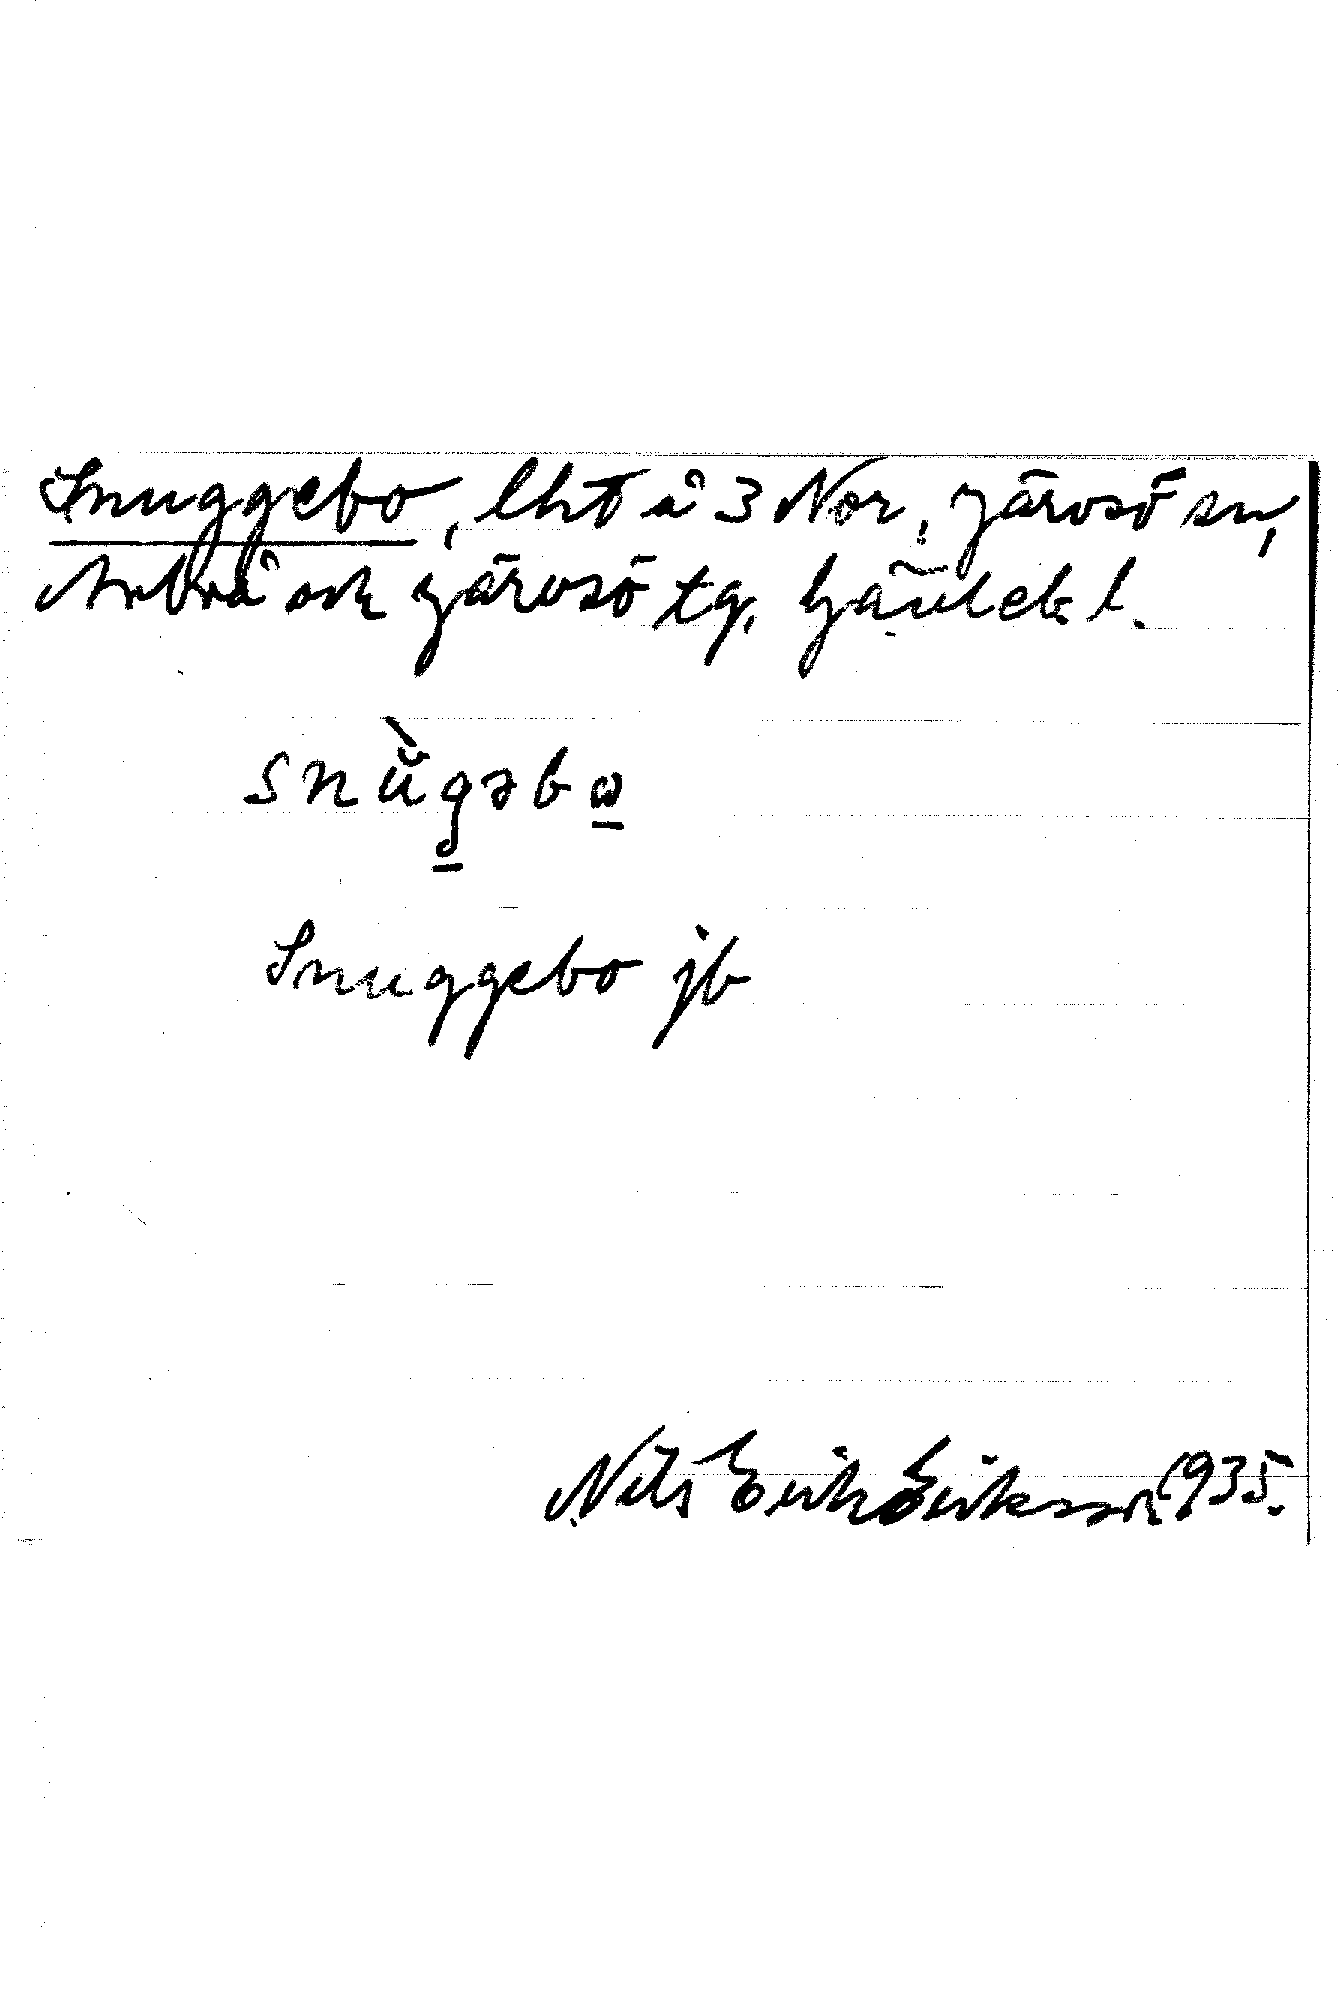 Snuggebo, lht å 3 Nor, Järvsö sn,
Arbrå och Järvsö tg. Gävleb. l.
snùgəbω
Snuggebo jb
Nils Erik Eriksson 1935.